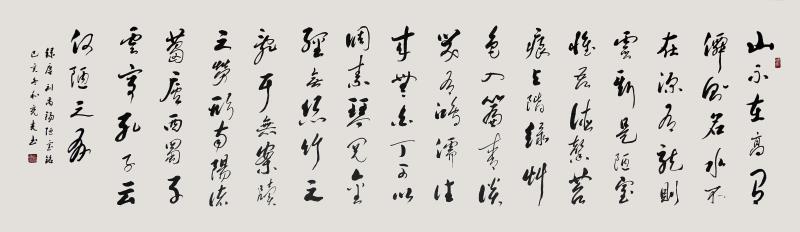 山不在高有
僊則名水不
在深有龍則
靈斯是陋室
惟吾德馨苔
痕上階綠草
色入簾青談
笑有鴻儒往
來無白丁可以
調素琴閱金
經無絲竹之
亂耳無案牘
之勞形南陽諸
葛廬西蜀子
雲亭孔子云
何陋之有
錄唐劉禹錫陋室銘